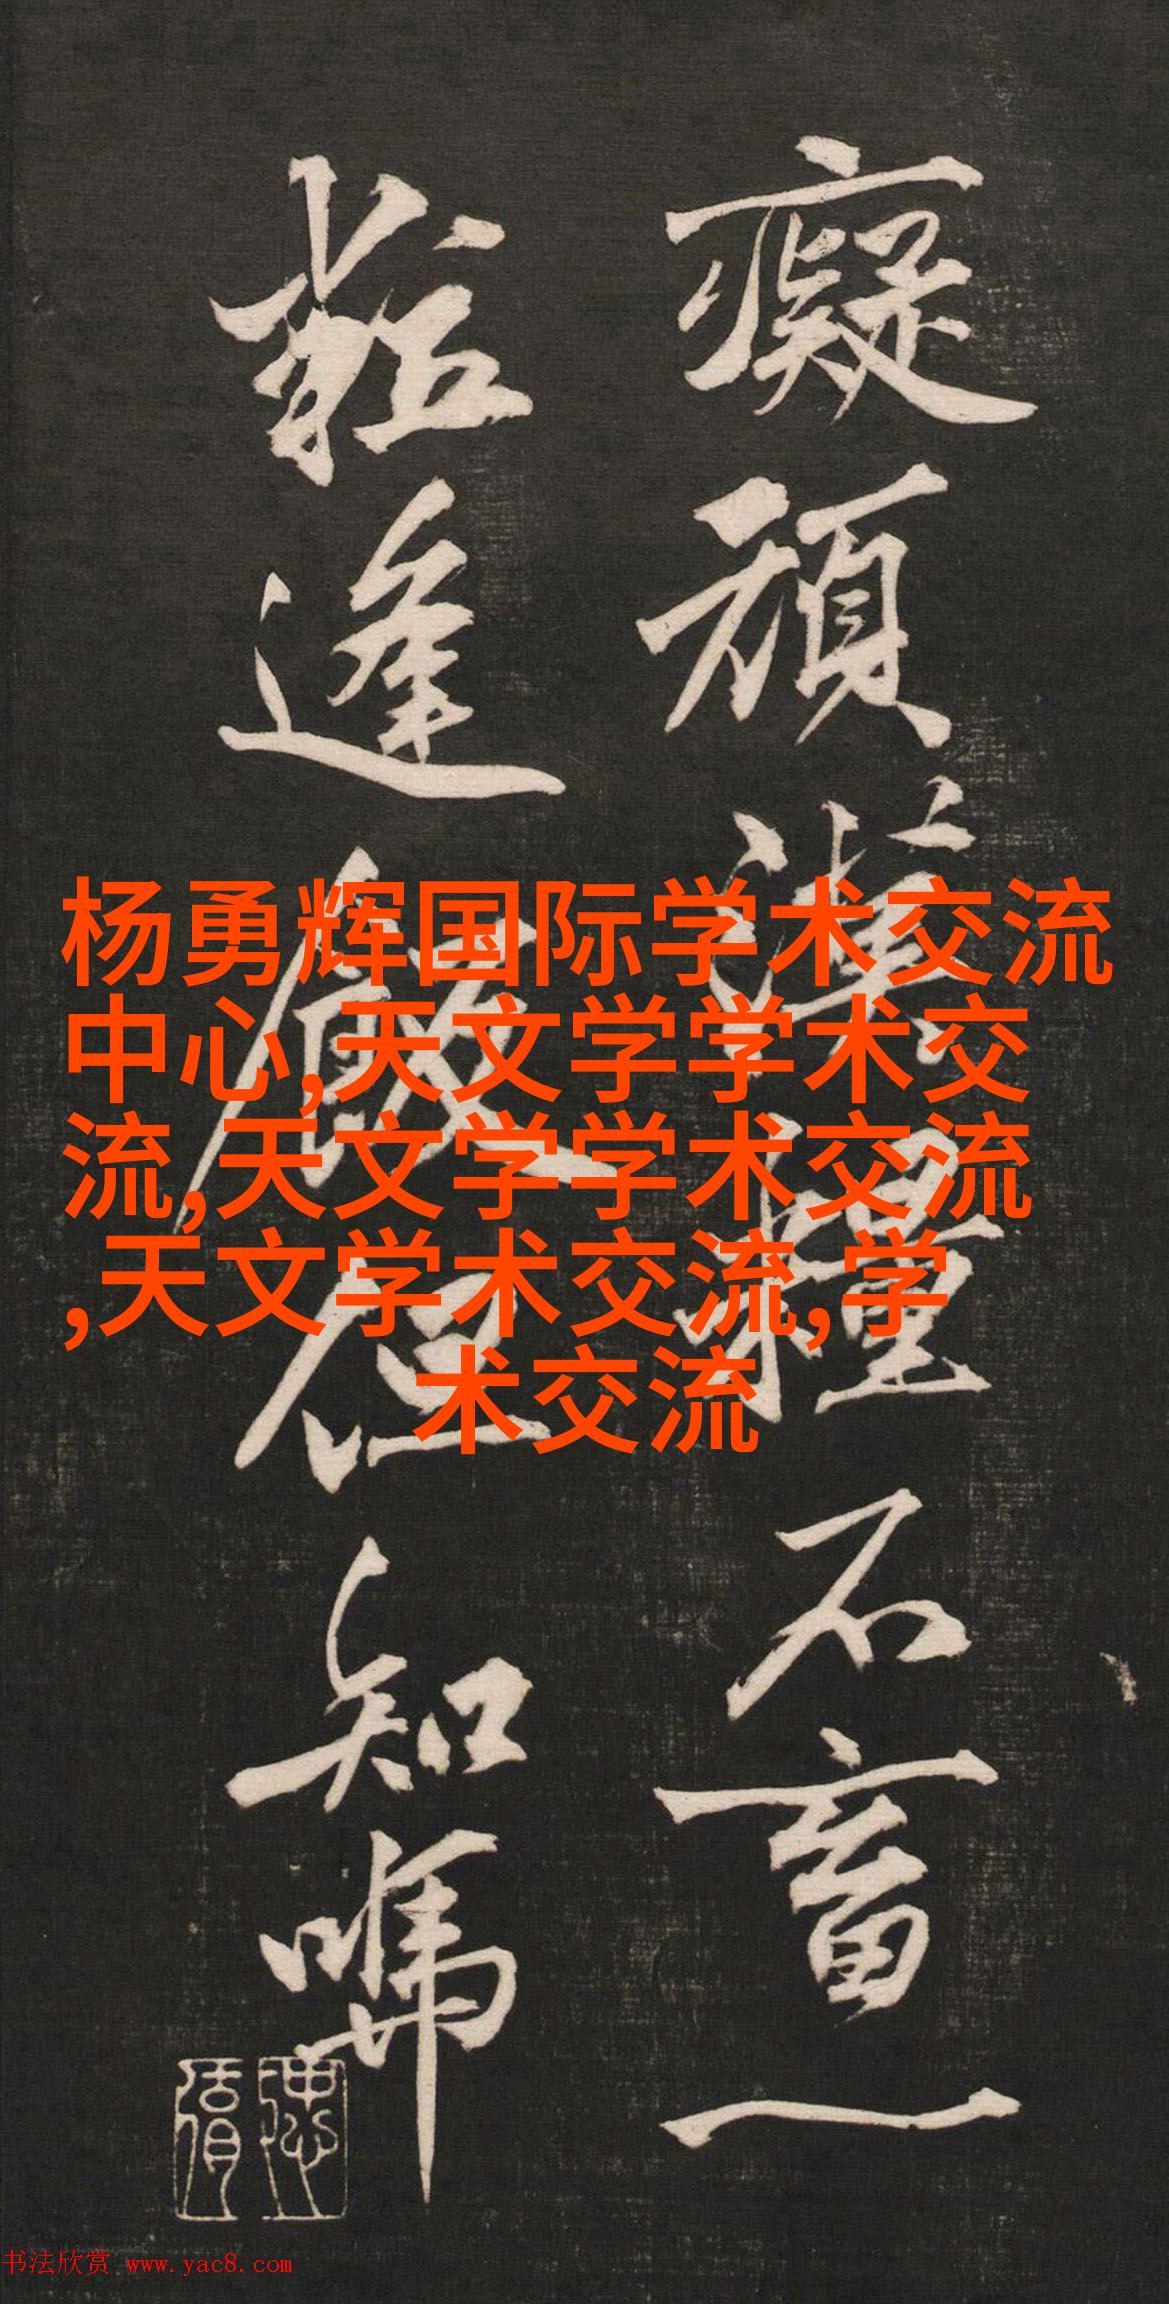 癡頑漢種石畜一
杨勇辉国际学术交流
中心,天文学学术交
流,天文学学术交流
,天文学术交流,学
术交流
逢
但知嘱
书法欣赏 www.yac8.com